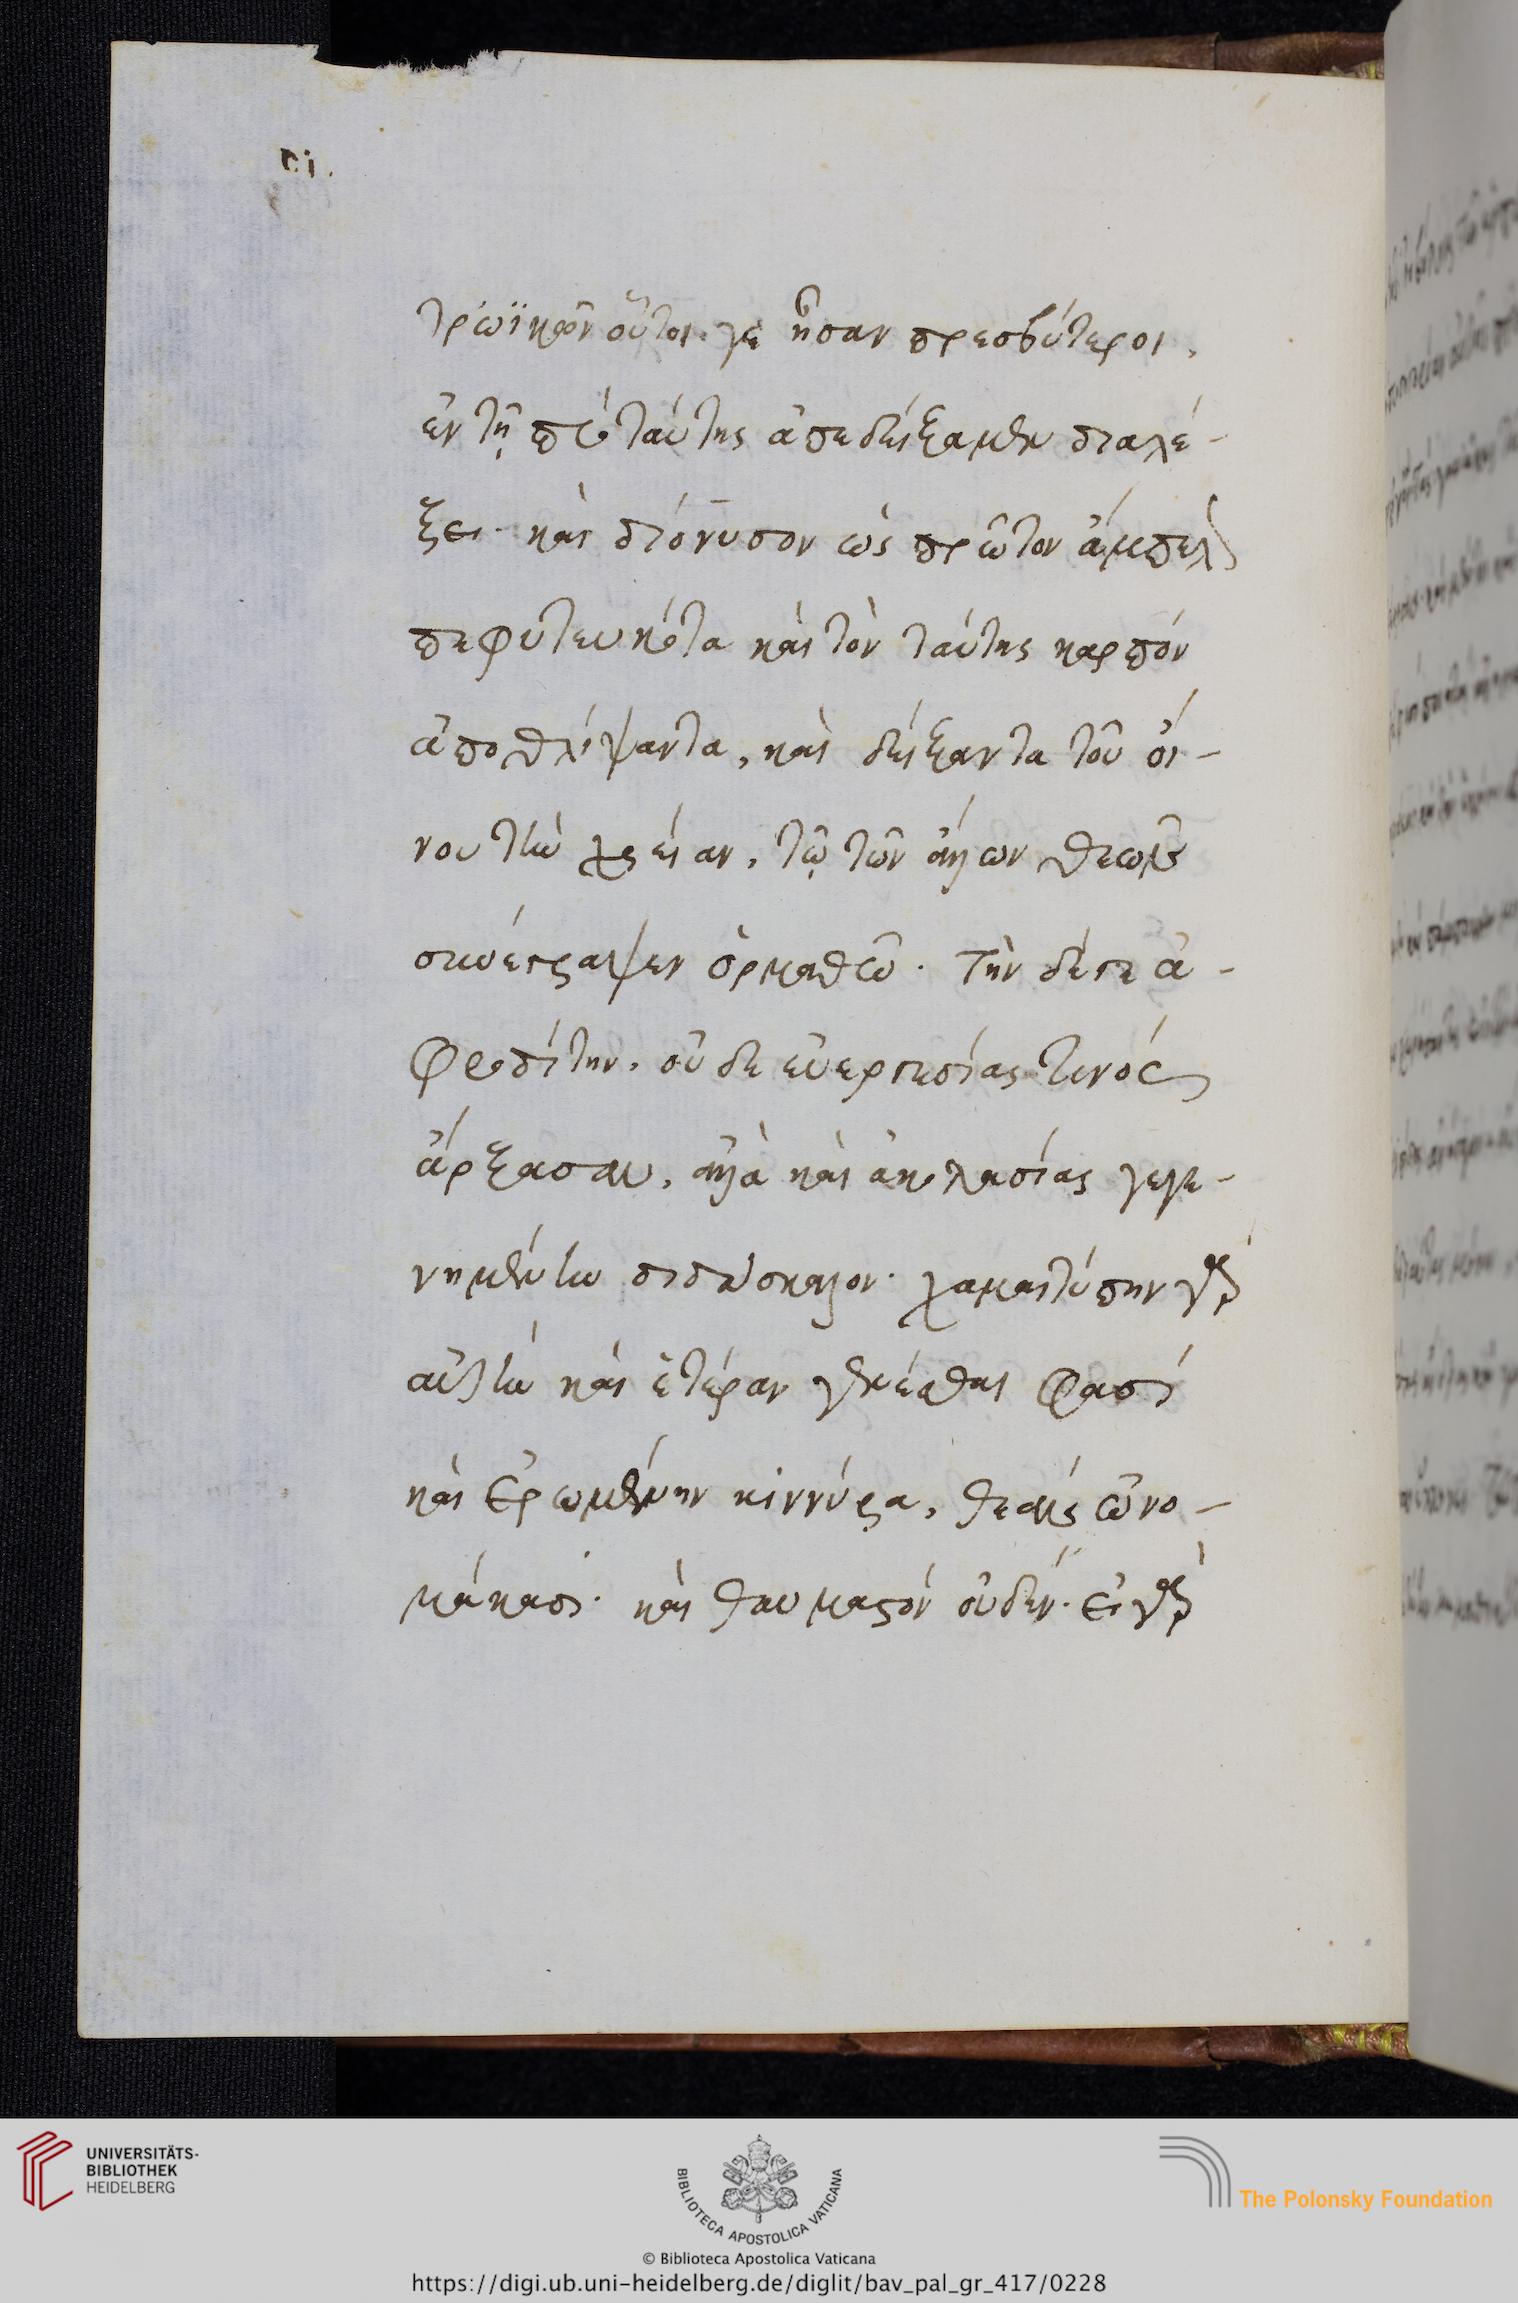 Τρωϊκῶν οὗτοί γε ἦσαν πρεσβύτεροι,
ἐν τῇ πρὸ ταύτης ἀπεδείξαμεν διαλέ-
ξει. καὶ διόνυσον ὡς πρῶτον ἄμπελον
πεφυτευκότα καὶ τὸν ταύτης καρπὸν
ἀποθλίψαντα, καὶ δείξαντα τοῦ οἴ-
νου τὴν χρείαν, τῷ τῶν ἄλλων θεῶν
συνέγραψεν ὁρμαθῶ. Τὴν δέ γε ἀ-
φροδίτην, οὐδὲ εὐεργεσίας τινὸς
ἄρξασαν, ἀλλὰ καὶ ἀκολασίας γεγε-
νημένην διδάσκαλον. χαμαιτύπην γὰρ
αὐτὴν καὶ ἑτέραν γενέσθαι φασὶ
καὶ ἐρωμένην κιννύρα, θεαῖς ὠνο-
μάκασι. καὶ θαυμαστὸν οὐδέν. εἰ γὰρ
UNIVERSITÄTS-
BIBLIOTHEK
HEIDELBERG
BIBLIOTECA APOSTOLICA VATICANA
The Polonsky Foundation
© Biblioteca Apostolica Vaticana
https://digi.ub.uni-heidelberg.de/diglit/bav_pal_gr_417/0228